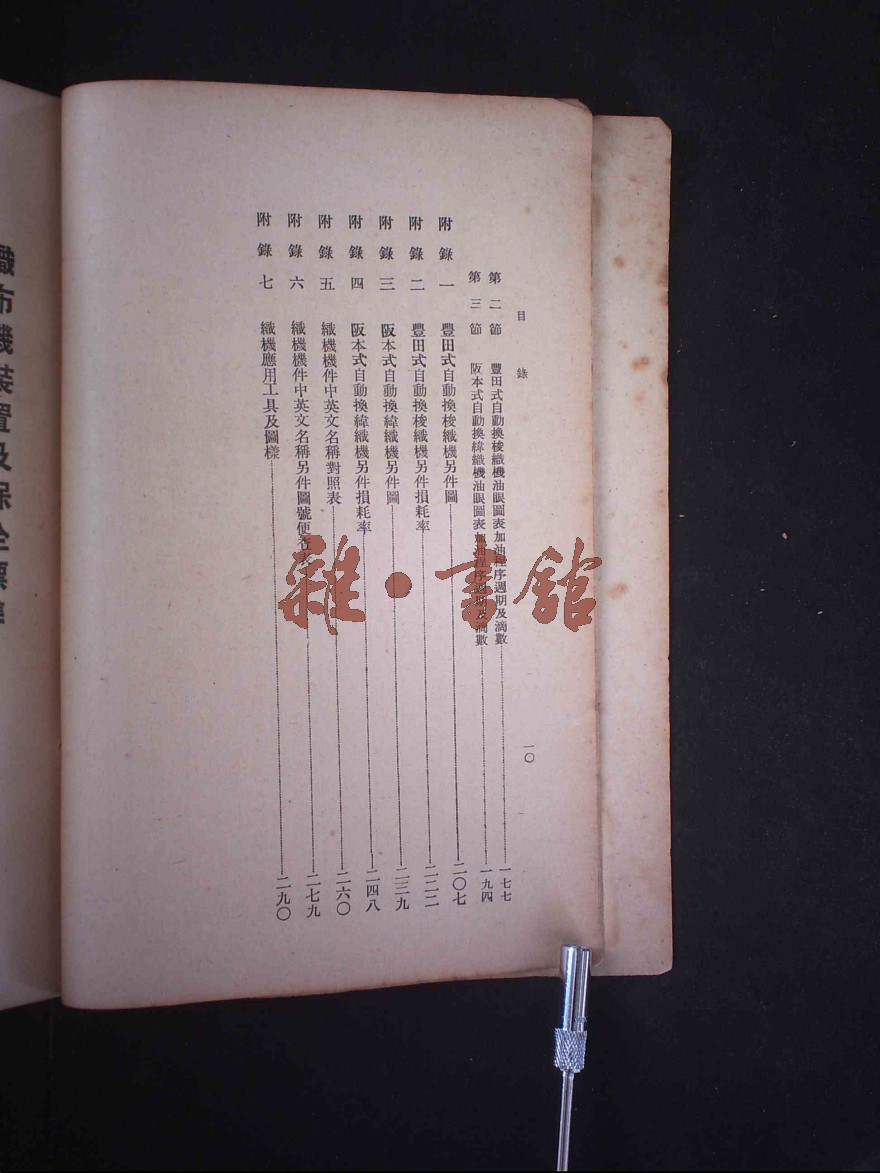 目錄
一〇
第二節 豐田式自動換梭織機油眼圖表加油程序週期及滴數 一七七
第三節 阪本式自動換緯織機油眼圖表加油程序週期及滴數 一九四
附錄一 豐田式自動換梭織機另件圖 二〇七
附錄二 豐田式自動換梭織機另件損耗率 二二二
附錄三 阪本式自動換緯織機另件圖 二三九
附錄四 阪本式自動換緯織機另件損耗率 二四八
附錄五 織機機件中英文名稱對照表 二六〇
附錄六 織機機件中英文名稱另件圖號便查表 二七九
附錄七 織機應用工具及圖樣 二九〇
織布機裝置及保全標準
雜·書館